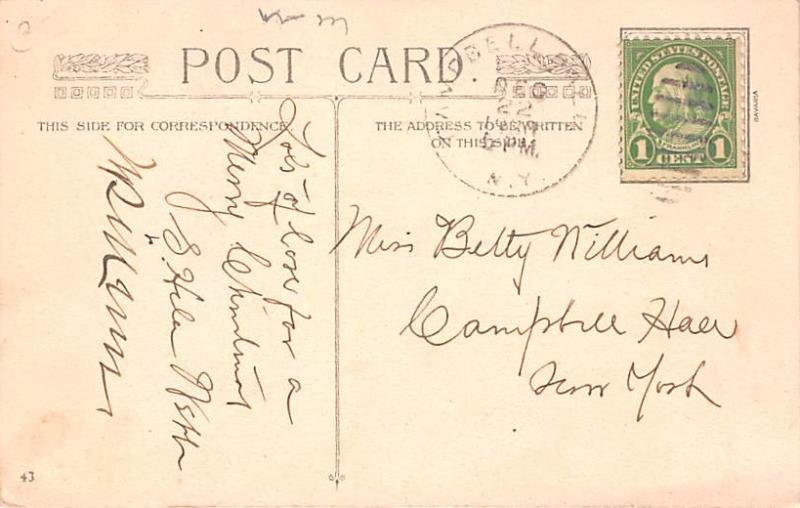 POST CARD.
THIS SIDE FOR CORRESPONDENCE.
THE ADDRESS TO BE WRITTEN
ON THIS SIDE.
CAMPBELL
DEC
PM.
N.Y.
UNITED STATES POSTAGE
FRANKLIN
1 CENT 1
BAVARIA
Lots of love for a
Merry Christmas
Miss Betty Williams
Campbell Hall
New York
43